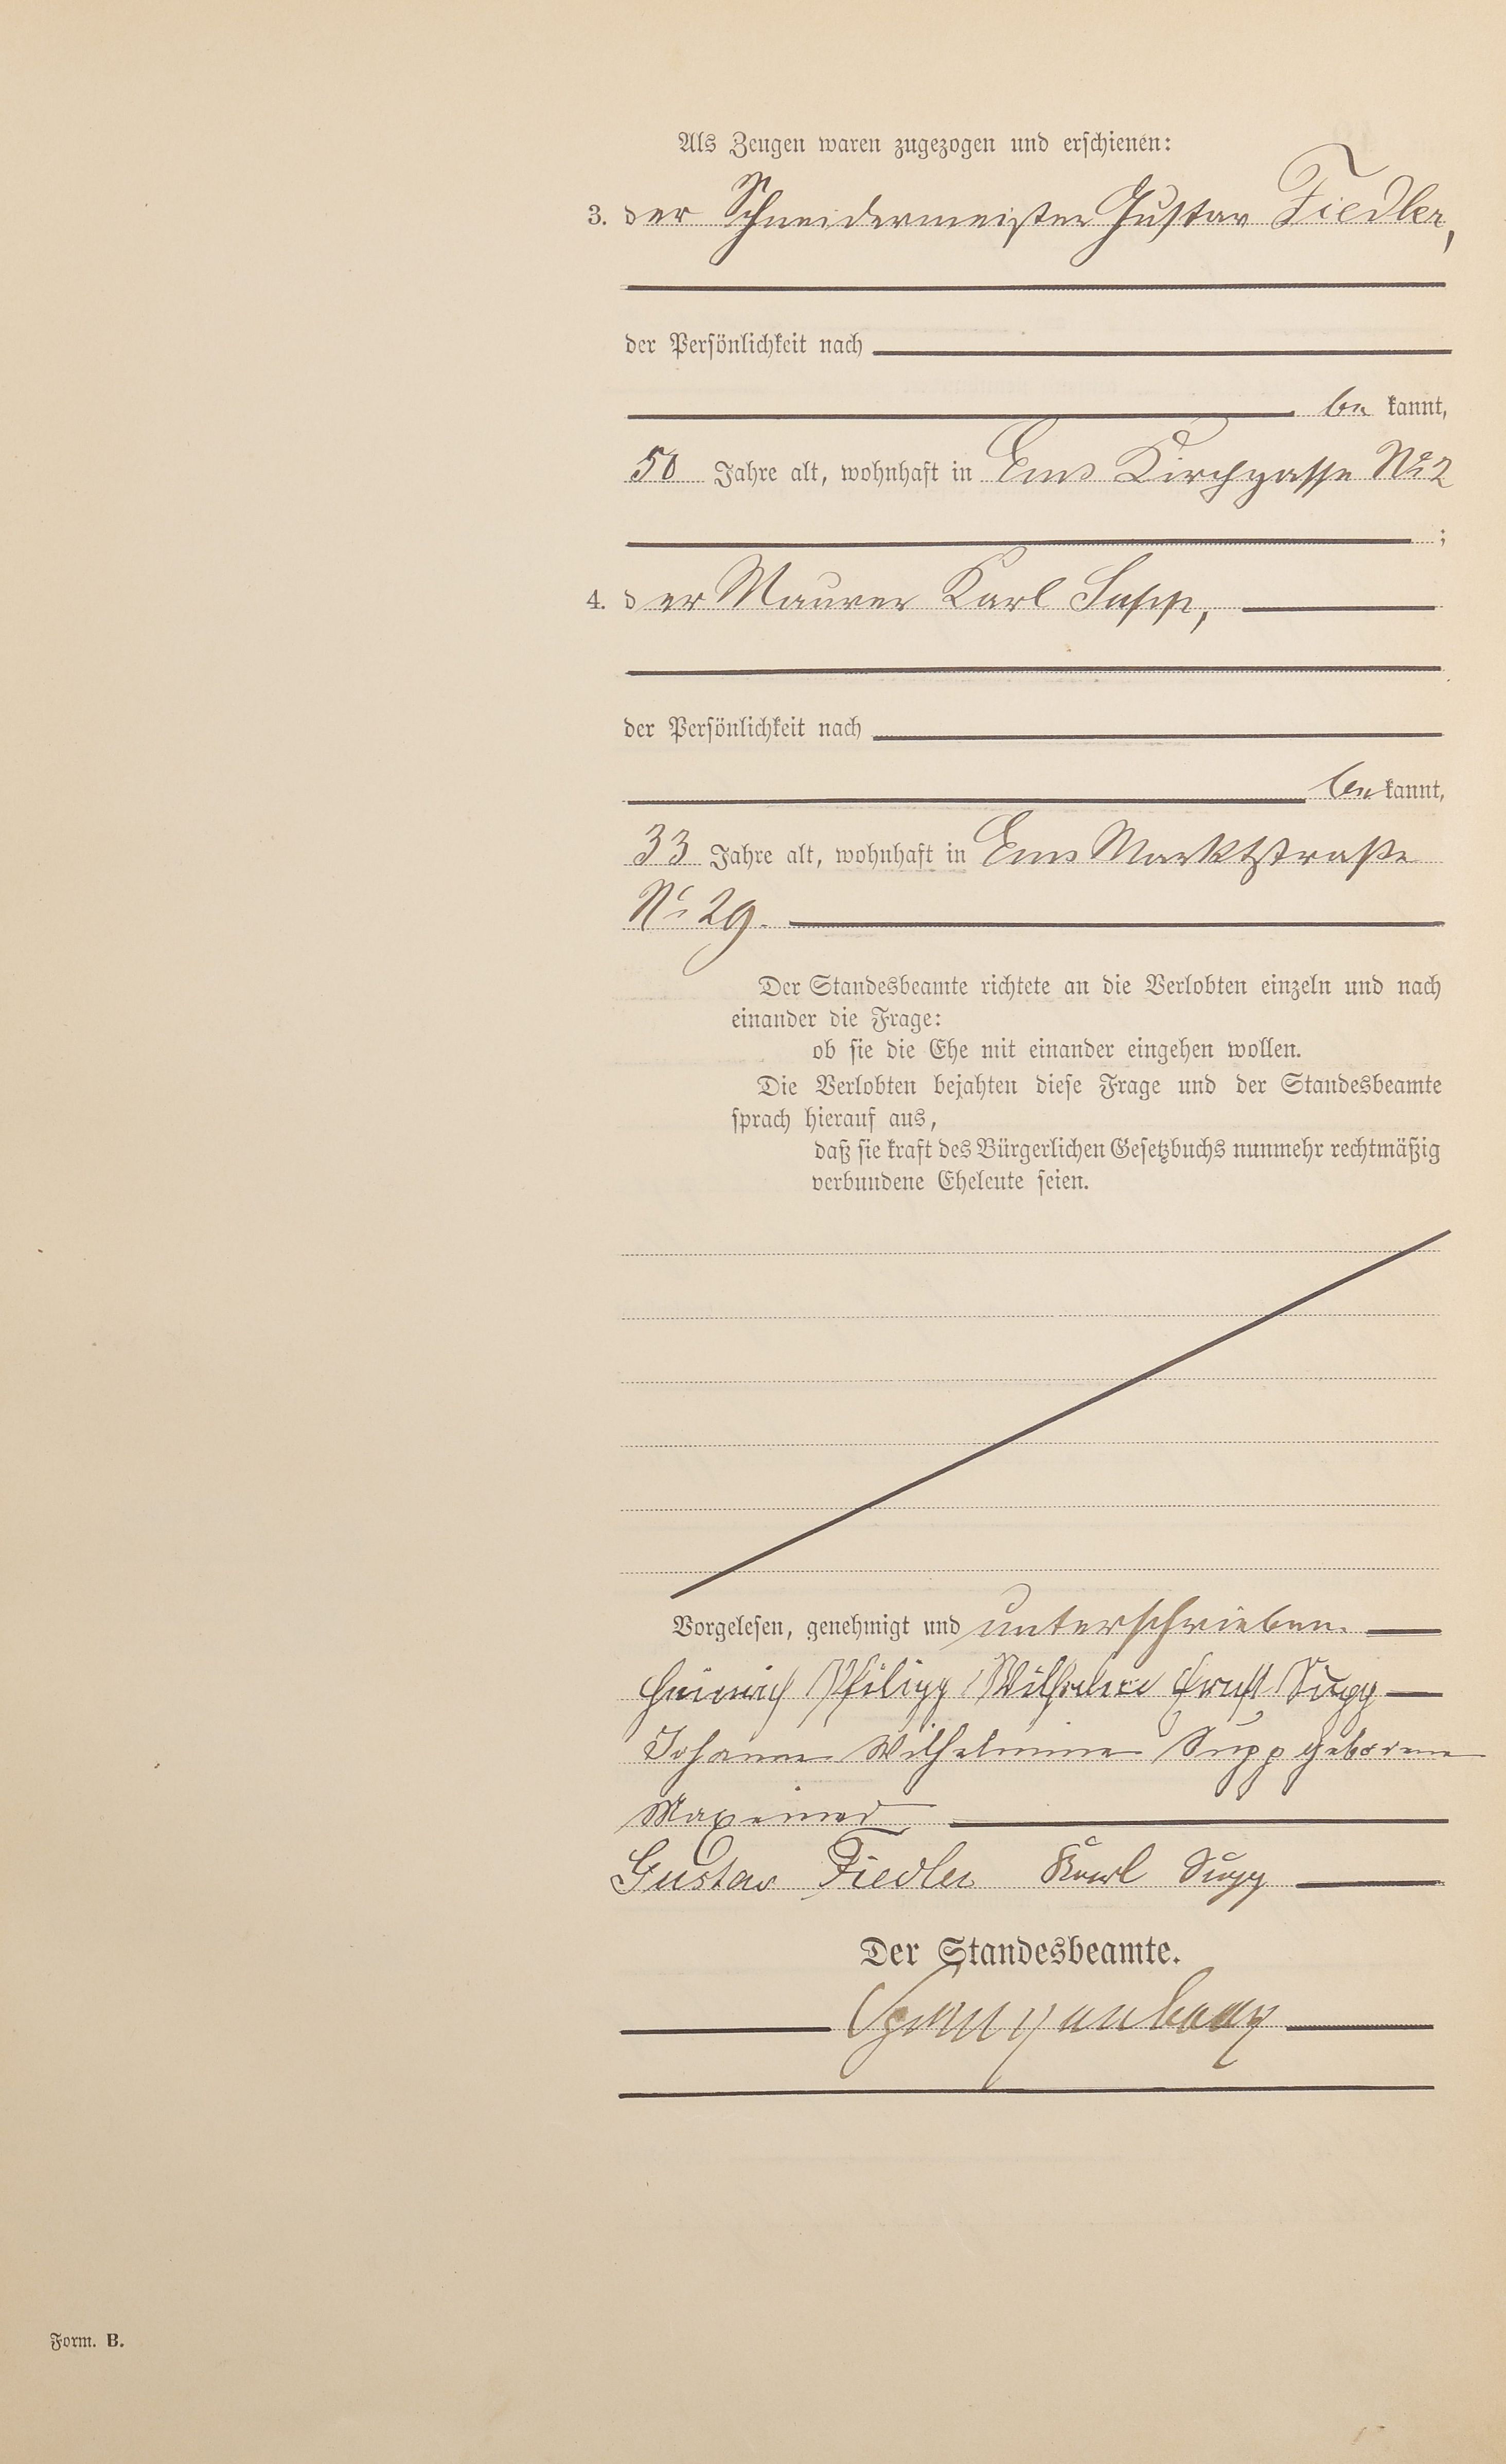 Als Zeugen waren zugezogen und erschienen:
3. der Schneidermeister Gustav Fiedler,
der Persönlichkeit nach
be kannt,
50 Jahre alt, wohnhaft in Ems Kirchgasse No 2
;
4. der Maurer Karl Supp,
der Persönlichkeit nach
be kannt,
33 Jahre alt, wohnhaft in Ems Marktstraße
No 29.
Der Standesbeamte richtete an die Verlobten einzeln und nach
einander die Frage:
ob sie die Ehe mit einander eingehen wollen.
Die Verlobten bejahten diese Frage und der Standesbeamte
sprach hierauf aus,
daß sie kraft des Bürgerlichen Gesetzbuchs nunmehr rechtmäßig
verbundene Eheleute seien.
Vorgelesen, genehmigt und unterschrieben.
Heinrich Philipp Wilhelm Ernst Supp
Johanna Wilhelmine Supp geborene
Maxeiner
Gustav Fiedler Karl Supp
Der Standesbeamte.
Form. B.